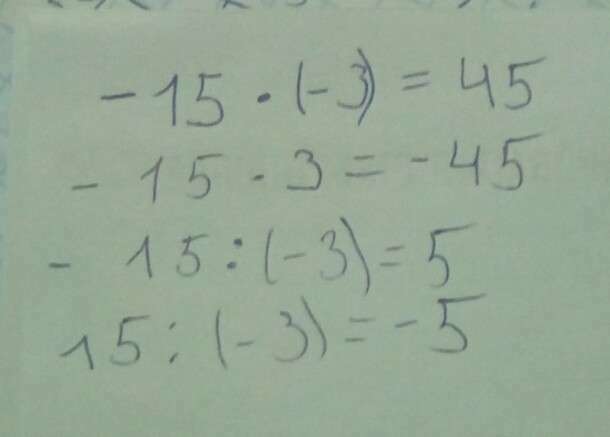 -15 · (-3) = 45
- 15 · 3 = -45
- 15 : (-3) = 5
15 : (-3) = -5